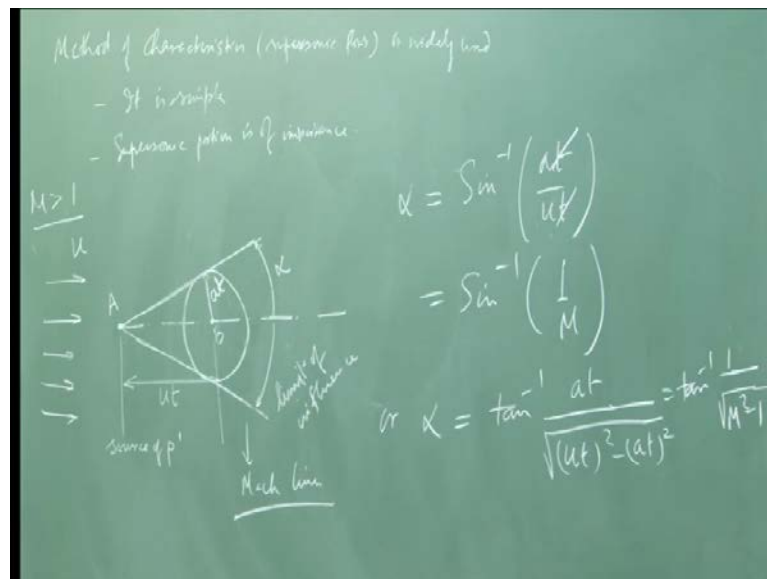 Method of Characteristics (supersonic flow) is widely used
- It is simple
- Supersonic portion is of importance.
M > 1
u
A
at
α
b
ut
limit of influence
source of p'
Mach line
α = Sin⁻¹ (at/ut)
= Sin⁻¹ (1/M)
or α = tan⁻¹ at/√((ut)²-(at)²) = tan⁻¹ 1/√(M²-1